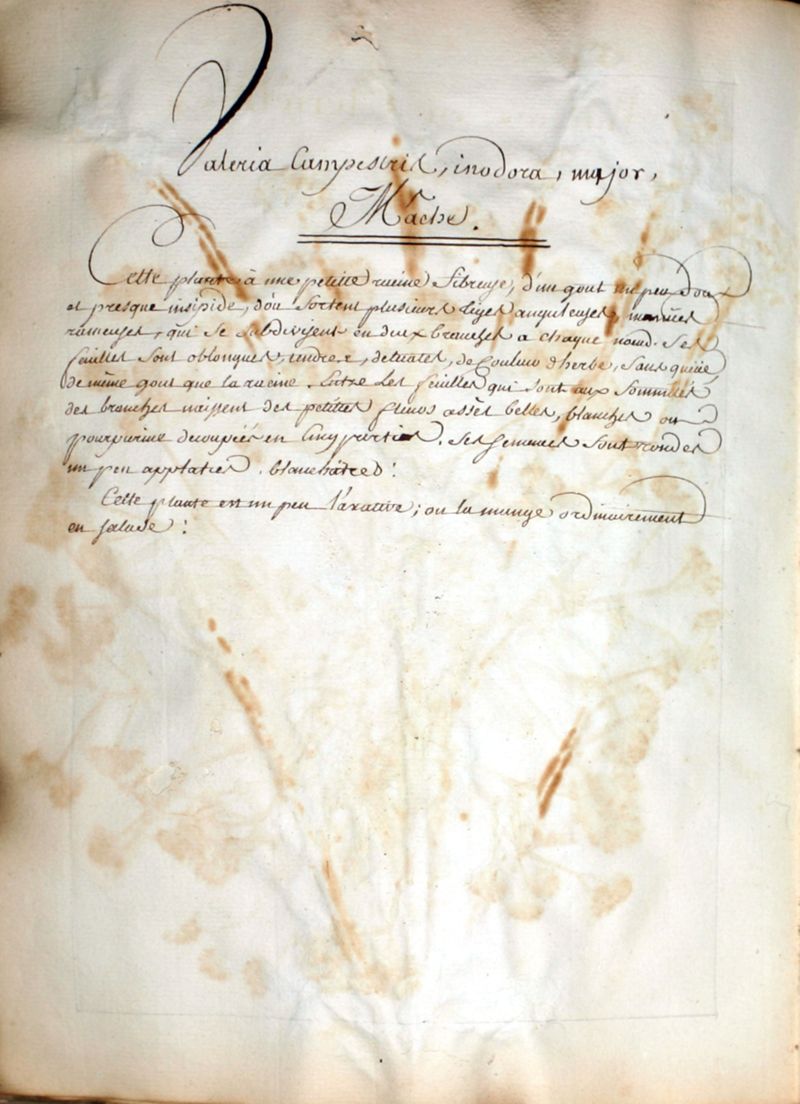 Valeria Campestris, inodora, major,
Mache.
Cette plante à une petite racine fibreuse, d'un gout un peu doux
et presque insipide, d'òu sortent plusieurs tiges anguleuses,
rameuses, qui se subdivisent en deux branches a chaque nœud. Ses
feuilles sont oblongues, tendres, de couleur d'herbe, sans queüe,
de même gout que la racine. Entre les feuilles qui sont aux sommités
des branches naissent des petites fleurs assès belles, blanches ou
pourpurine decoupées en cinq parties. Ses semences sont rondes
un peu applaties, blanchâtres:
Cette plante est un peu laxative; on la mange ordinairement
en salade: